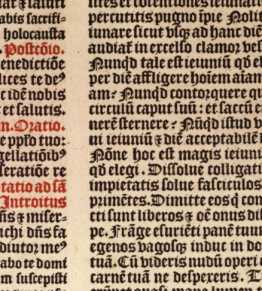 abis sacrifi-
holocausta
Postcōio.
benedictiōe
lices te
t idē nobis
et salutis.
n. Oratio.
e p̄p̄lo tuo:
gellatiōibꝰ
seratiōe re
tatio ad sā
Introitus
ñs ⁊ miser-
ichi dñs fa
diutor meꝰ
abo te domi
m suscepisti
percutitis pugno īpie. Noli
iunare sicut vsqꝫ ad hanc diē
audiat̄ in excelso clamor ves
Nunqd̄ tale est ieiuniū qd̄ el
per diē affligere hoīem aīam
am? Nunqd̄ contorquere qu
circulū caput suū: et saccū et
nerē sternere? Nūqd̄ istud v
ui ieiuniū ⁊ diē acceptabilē
Nōne hoc est magis ieiun
qd̄ elegi. Dissolue colligati
impietatis solue fasciculos
primētes. Dimitte eos q̄ con
cti sunt liberos ⁊ oē onus dis
pe. Frāge esuriēti panē tuum
egenos vagosqꝫ induc in do
tuā. Cū videris nudū operi
carnē tuā ne despexeris. T